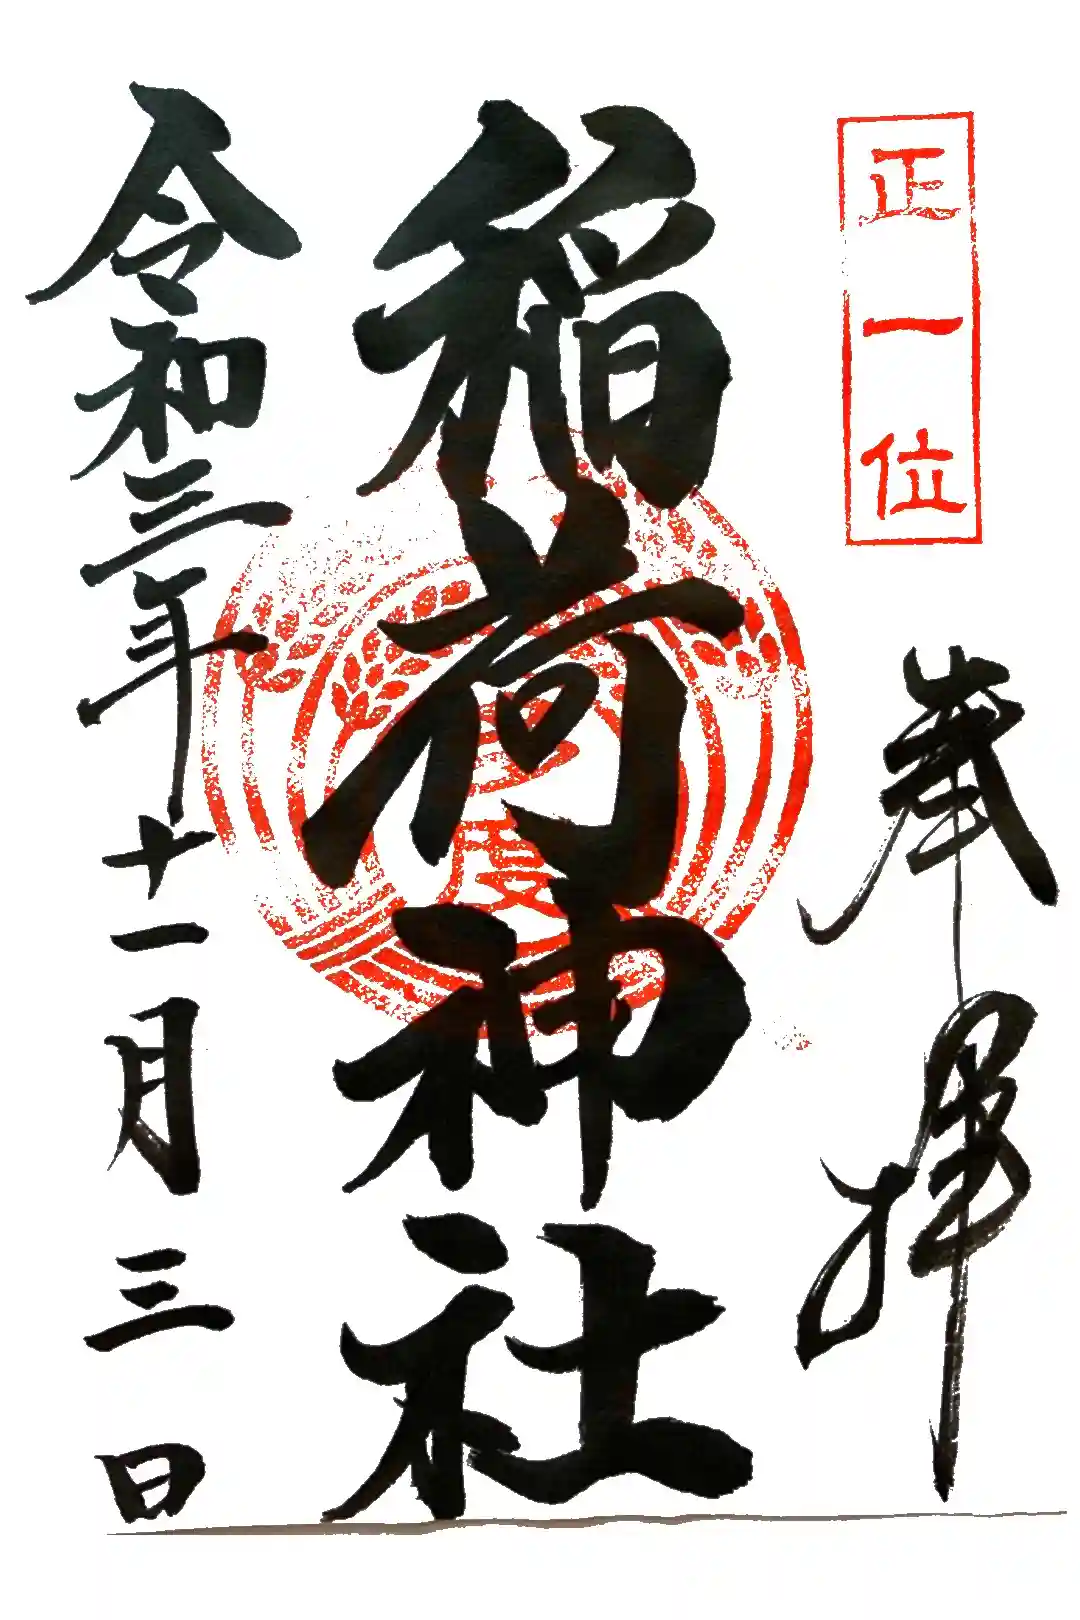 正一位
奉拝
稲荷神社
令和三年十一月三日